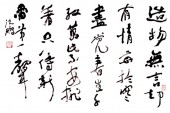 造物無言却
有情每於寒
盡覺春生千
紅萬紫安排
著只待新
雷第一聲